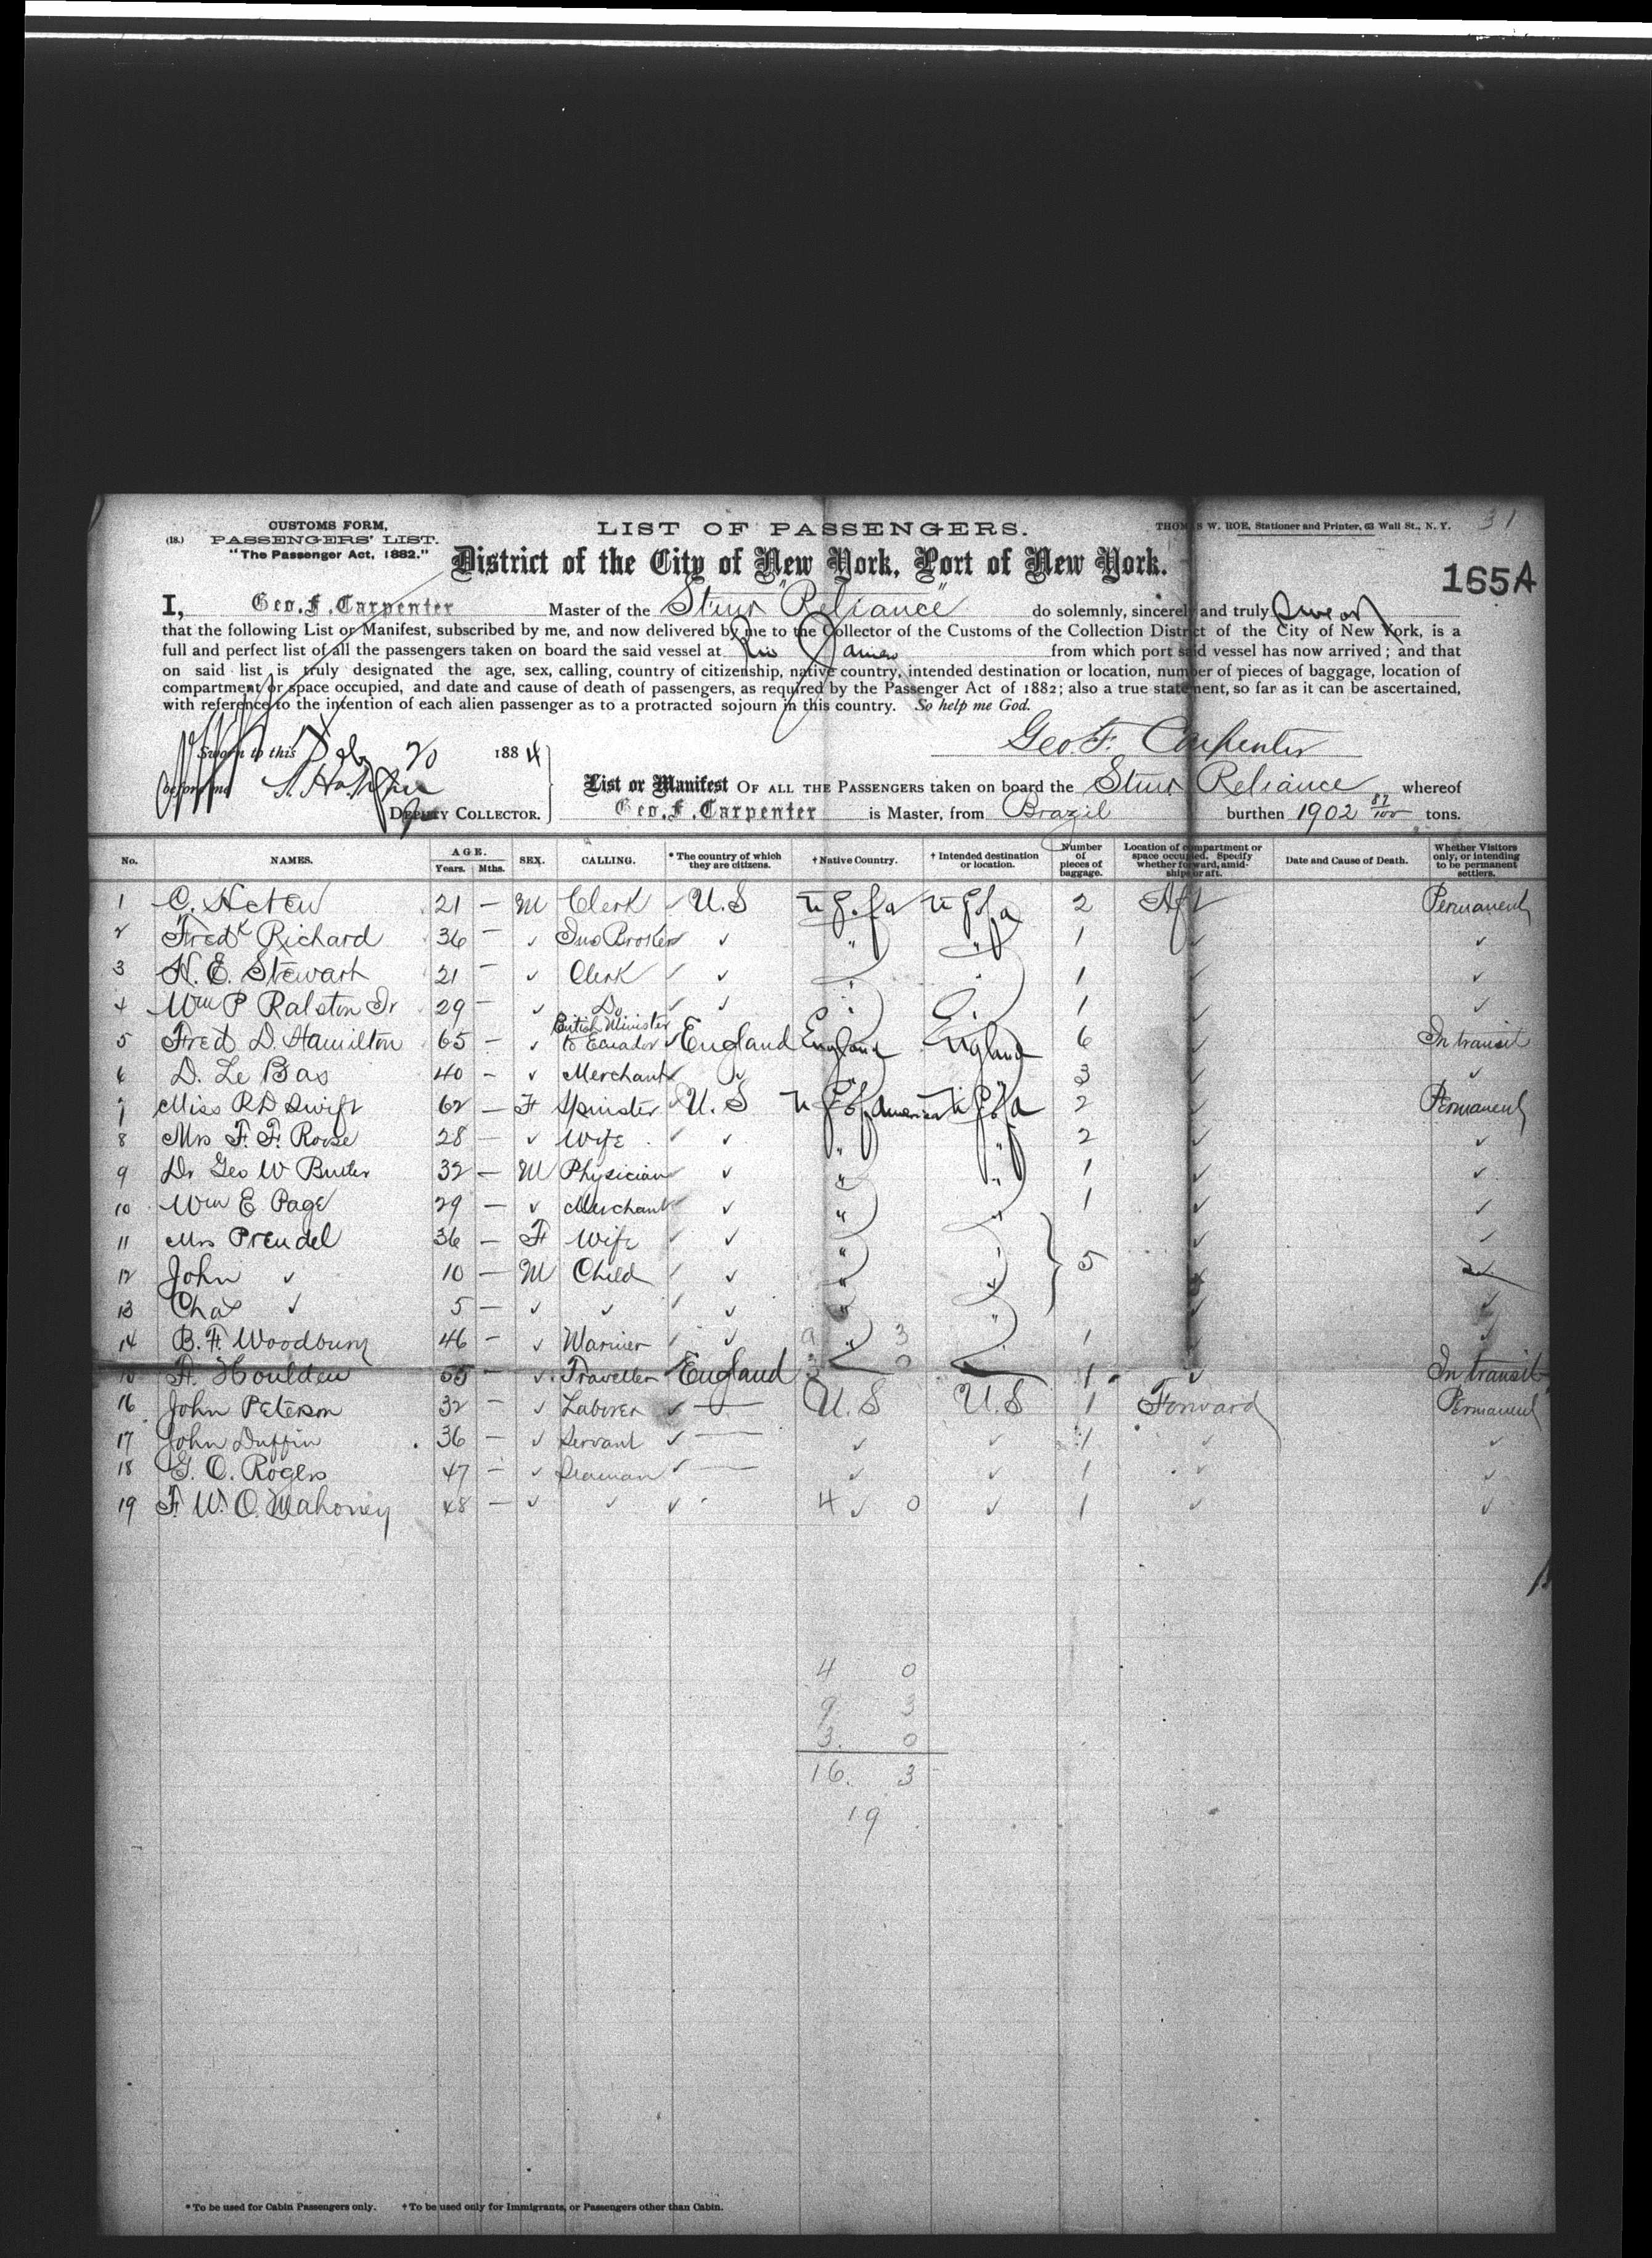 CUSTOMS FORM,
(18.) PASSENGERS' LIST.
"The Passenger Act, 1882."
LIST OF PASSENGERS.
THOMAS W. ROE, Stationer and Printer, 63 Wall St., N. Y. 31
District of the City of New York, Port of New York.
165A
I, Geo. F. Carpenter Master of the Stmr "Reliance" do solemnly, sincerely and truly swear
that the following List or Manifest, subscribed by me, and now delivered by me to the Collector of the Customs of the Collection District of the City of New York, is a
full and perfect list of all the passengers taken on board the said vessel at Rio Janeiro from which port said vessel has now arrived; and that
on said list is truly designated the age, sex, calling, country of citizenship, native country, intended destination or location, number of pieces of baggage, location of
compartment or space occupied, and date and cause of death of passengers, as required by the Passenger Act of 1882; also a true statement, so far as it can be ascertained,
with reference to the intention of each alien passenger as to a protracted sojourn in this country. So help me God.
Geo. F. Carpenter
Sworn to this 20 1884
before me
DEPUTY COLLECTOR.
List or Manifest OF ALL THE PASSENGERS taken on board the Stmr Reliance whereof
Geo. F. Carpenter is Master, from Brazil burthen 1902 87/100 tons.
No. NAMES. AGE. Years. Mths. SEX. CALLING. * The country of which they are citizens. † Native Country. † Intended destination or location. Number of pieces of baggage. Location of compartment or space occupied. Specify whether forward, amidships or aft. Date and Cause of Death. Whether Visitors only, or intending to be permanent settlers.
1 C. Acten 21 — M Clerk ✓ U.S U S of a U S of a 2 Aft Permanent
2 Fredk Richard 36 — ✓ Ins Broker ✓ " " 1 ✓ ✓
3 H. E. Stewart 21 — ✓ Clerk ✓ ✓ " " 1 ✓ ✓
4 Wm P Ralston Jr 29 — ✓ Do ✓ ✓ " " 1 ✓ ✓
5 Fred D. Hamilton 65 — ✓ British Minister to Ecuador ✓ England England England 6 ✓ In transit
6 D. Le Bas 40 — ✓ Merchant ✓ ✓ " " 3 ✓ ✓
7 Miss R D Swift 62 — F Spinster ✓ U.S U S of America U S of a 2 ✓ Permanent
8 Mrs F. F. Roose 28 — ✓ Wife ✓ ✓ " " 2 ✓ ✓
9 Dr Geo W Butler 32 — M Physician ✓ ✓ " " 1 ✓ ✓
10 Wm E Page 29 — ✓ Merchant ✓ ✓ " " 1 ✓ ✓
11 Mrs Prendel 36 — F Wife ✓ ✓ " " ✓ ✓
12 John ✓ 10 — M Child ✓ ✓ " " 5 ✓ ✓
13 Chas ✓ 5 — ✓ ✓ ✓ ✓ " " ✓ ✓
14 B. F. Woodbury 46 — ✓ Mariner ✓ ✓ 9 " 3 1 ✓ ✓
15 H. Houlden 55 — ✓ Traveller ✓ England 3 0 1 ✓ In transit
16 John Peterson 32 — ✓ Laborer ✓ — U.S U.S 1 Forward Permanent
17 John Duffin 36 — ✓ Servant ✓ — ✓ ✓ 1 ✓ ✓
18 G. O. Rogers 47 — ✓ Seaman ✓ — ✓ ✓ 1 ✓ ✓
19 F. W. O. Mahoney 48 — ✓ ✓ ✓ 4 ✓ 0 ✓ 1 ✓ ✓
4 0
9 3
3. 0
16. 3
19
* To be used for Cabin Passengers only. † To be used only for Immigrants, or Passengers other than Cabin.